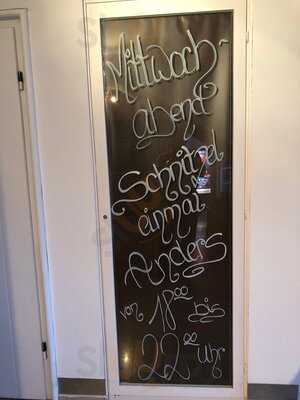 Mittwoch-
abend
Schnitzel
einmal
Anders
von 18⁰⁰ bis
22⁰⁰ Uhr